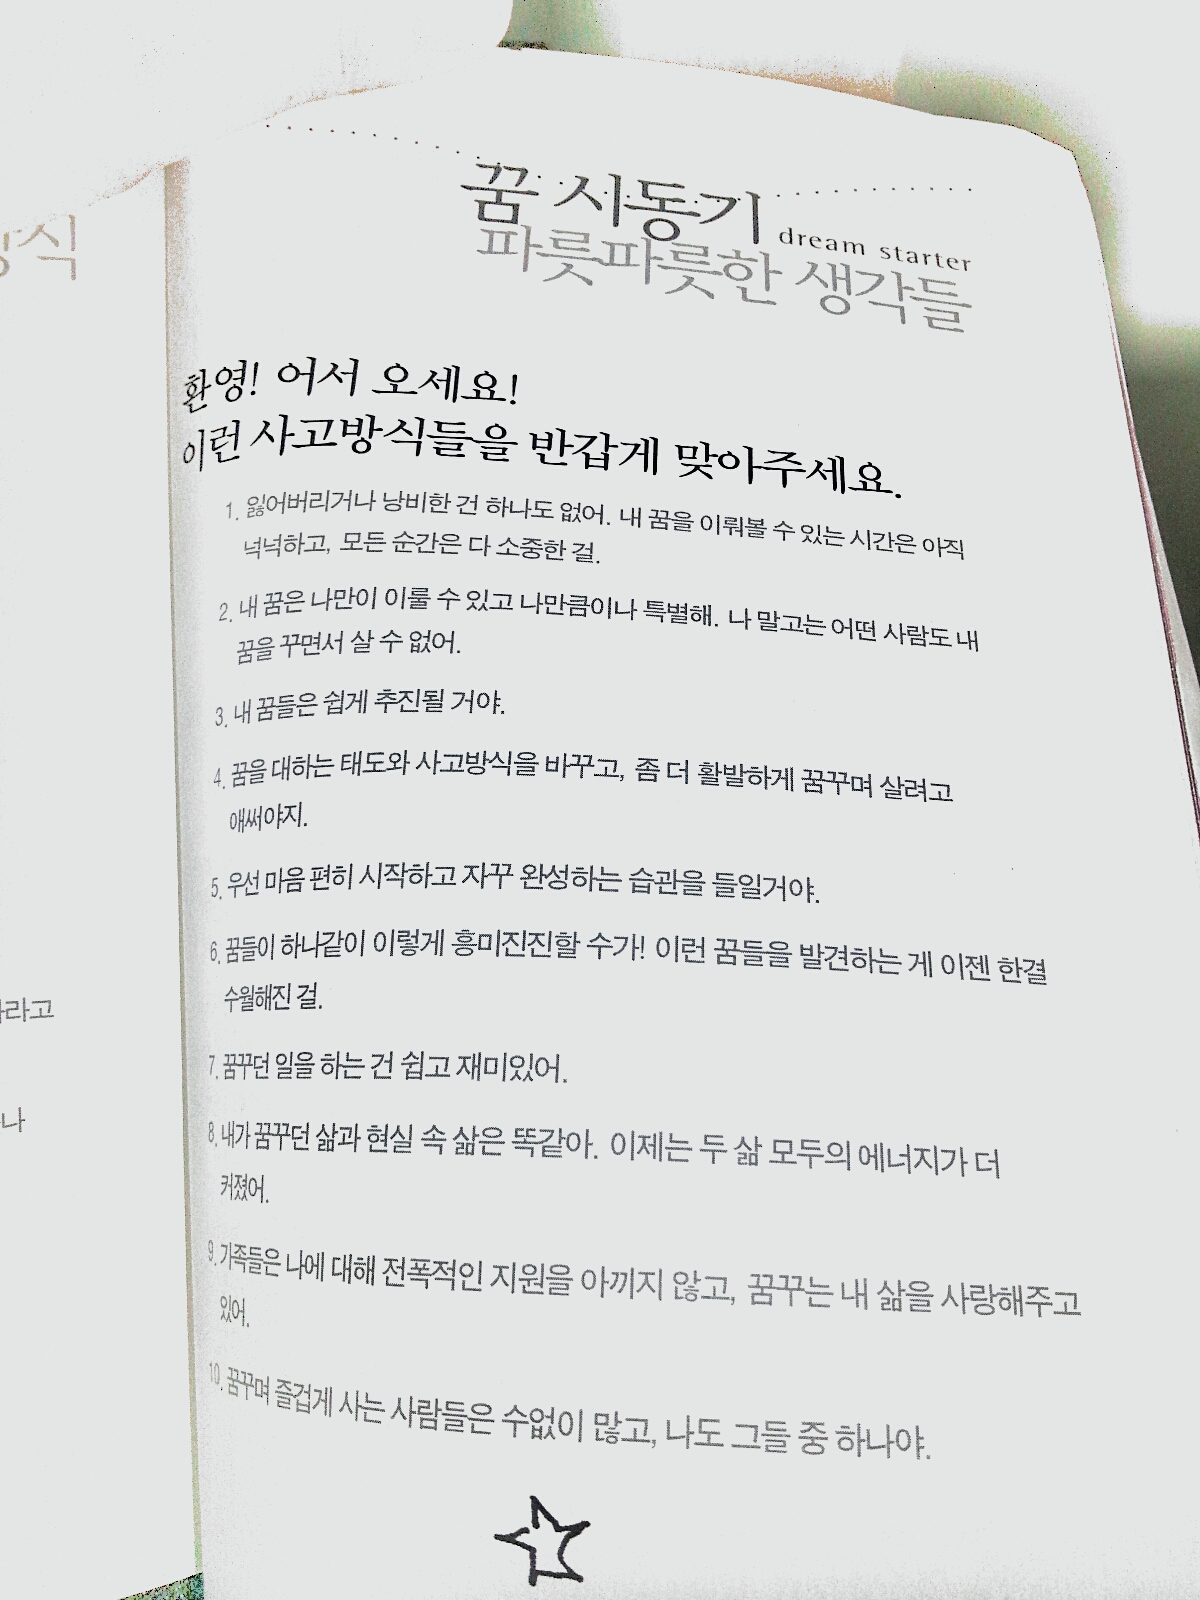 방식
라고
나
꿈 시동기 dream starter
파릇파릇한 생각들
환영! 어서 오세요!
이런 사고방식들을 반갑게 맞아주세요.
1. 잃어버리거나 낭비한 건 하나도 없어. 내 꿈을 이뤄볼 수 있는 시간은 아직
넉넉하고, 모든 순간은 다 소중한 걸.
2. 내 꿈은 나만이 이룰 수 있고 나만큼이나 특별해. 나 말고는 어떤 사람도 내
꿈을 꾸면서 살 수 없어.
3. 내 꿈들은 쉽게 추진될 거야.
4. 꿈을 대하는 태도와 사고방식을 바꾸고, 좀 더 활발하게 꿈꾸며 살려고
애써야지.
5. 우선 마음 편히 시작하고 자꾸 완성하는 습관을 들일거야.
6. 꿈들이 하나같이 이렇게 흥미진진할 수가! 이런 꿈들을 발견하는 게 이젠 한결
수월해진 걸.
7. 꿈꾸던 일을 하는 건 쉽고 재미있어.
8. 내가 꿈꾸던 삶과 현실 속 삶은 똑같아. 이제는 두 삶 모두의 에너지가 더
커졌어.
9. 가족들은 나에 대해 전폭적인 지원을 아끼지 않고, 꿈꾸는 내 삶을 사랑해주고
있어.
10. 꿈꾸며 즐겁게 사는 사람들은 수없이 많고, 나도 그들 중 하나야.